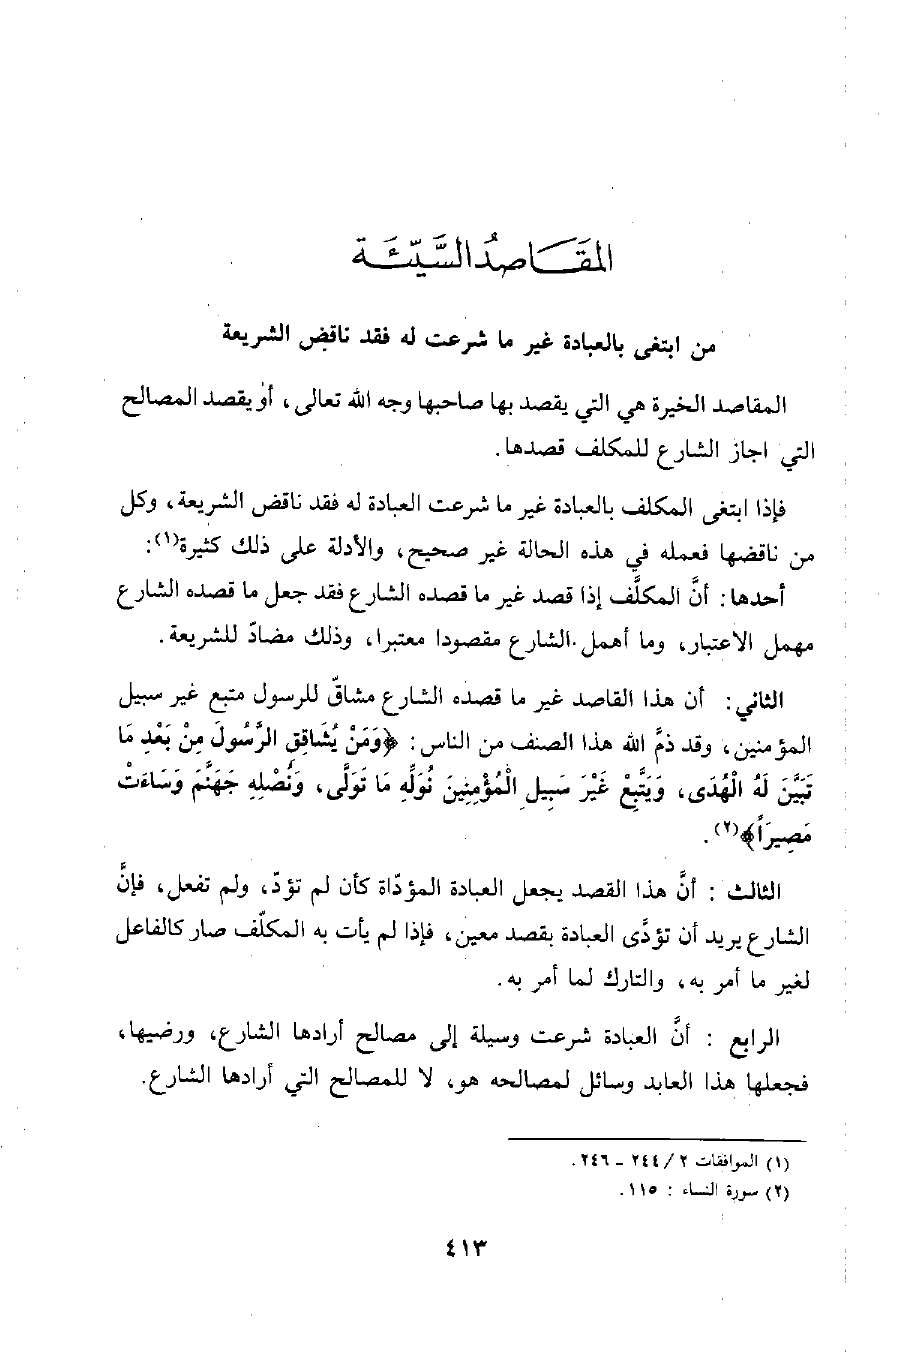 المقَاصدُ السَّيّئَة
من ابتغى بالعبادة غير ما شرعت له فقد ناقض الشريعة
المقاصد الخيرة هي التي يقصد بها صاحبها وجه الله تعالى، أو يقصد المصالح
التي اجاز الشارع للمكلف قصدها.
فإذا ابتغى المكلف بالعبادة غير ما شرعت العبادة له فقد ناقض الشريعة، وكل
من ناقضها فعمله في هذه الحالة غير صحيح، والأدلة على ذلك كثيرة(١):
أحدها: أنَّ المكلَّف إذا قصد غير ما قصده الشارع فقد جعل ما قصده الشارع
مهمل الاعتبار، وما أهمل الشارع مقصودا معتبرا، وذلك مضادّ للشريعة.
الثاني: أن هذا القاصد غير ما قصده الشارع مشاقّ للرسول متبع غير سبيل
المؤمنين، وقد ذمَّ الله هذا الصنف من الناس: ﴿وَمَنْ يُشَاقِقِ الرَّسُولَ مِنْ بَعْدِ مَا
تَبَيَّنَ لَهُ الْهُدَى، وَيَتَّبِعْ غَيْرَ سَبِيلِ الْمُؤْمِنِينَ نُوَلِّهِ مَا تَوَلَّى، وَنُصْلِهِ جَهَنَّمَ وَسَاءَتْ
مَصِيرَاً﴾(٢).
الثالث : أنَّ هذا القصد يجعل العبادة المؤدّاة كأن لم تؤدّ، ولم تفعل، فإنَّ
الشارع يريد أن تؤدَّى العبادة بقصد معين، فإذا لم يأت به المكلّف صار كالفاعل
لغير ما أمر به، والتارك لما أمر به.
الرابع : أنَّ العبادة شرعت وسيلة إلى مصالح أرادها الشارع، ورضيها،
فجعلها هذا العابد وسائل لمصالحه هو، لا للمصالح التي أرادها الشارع.
(١) الموافقات ٢/ ٢٤٤ ـ ٢٤٦.
(٢) سورة النساء : ١١٥.
٤١٣